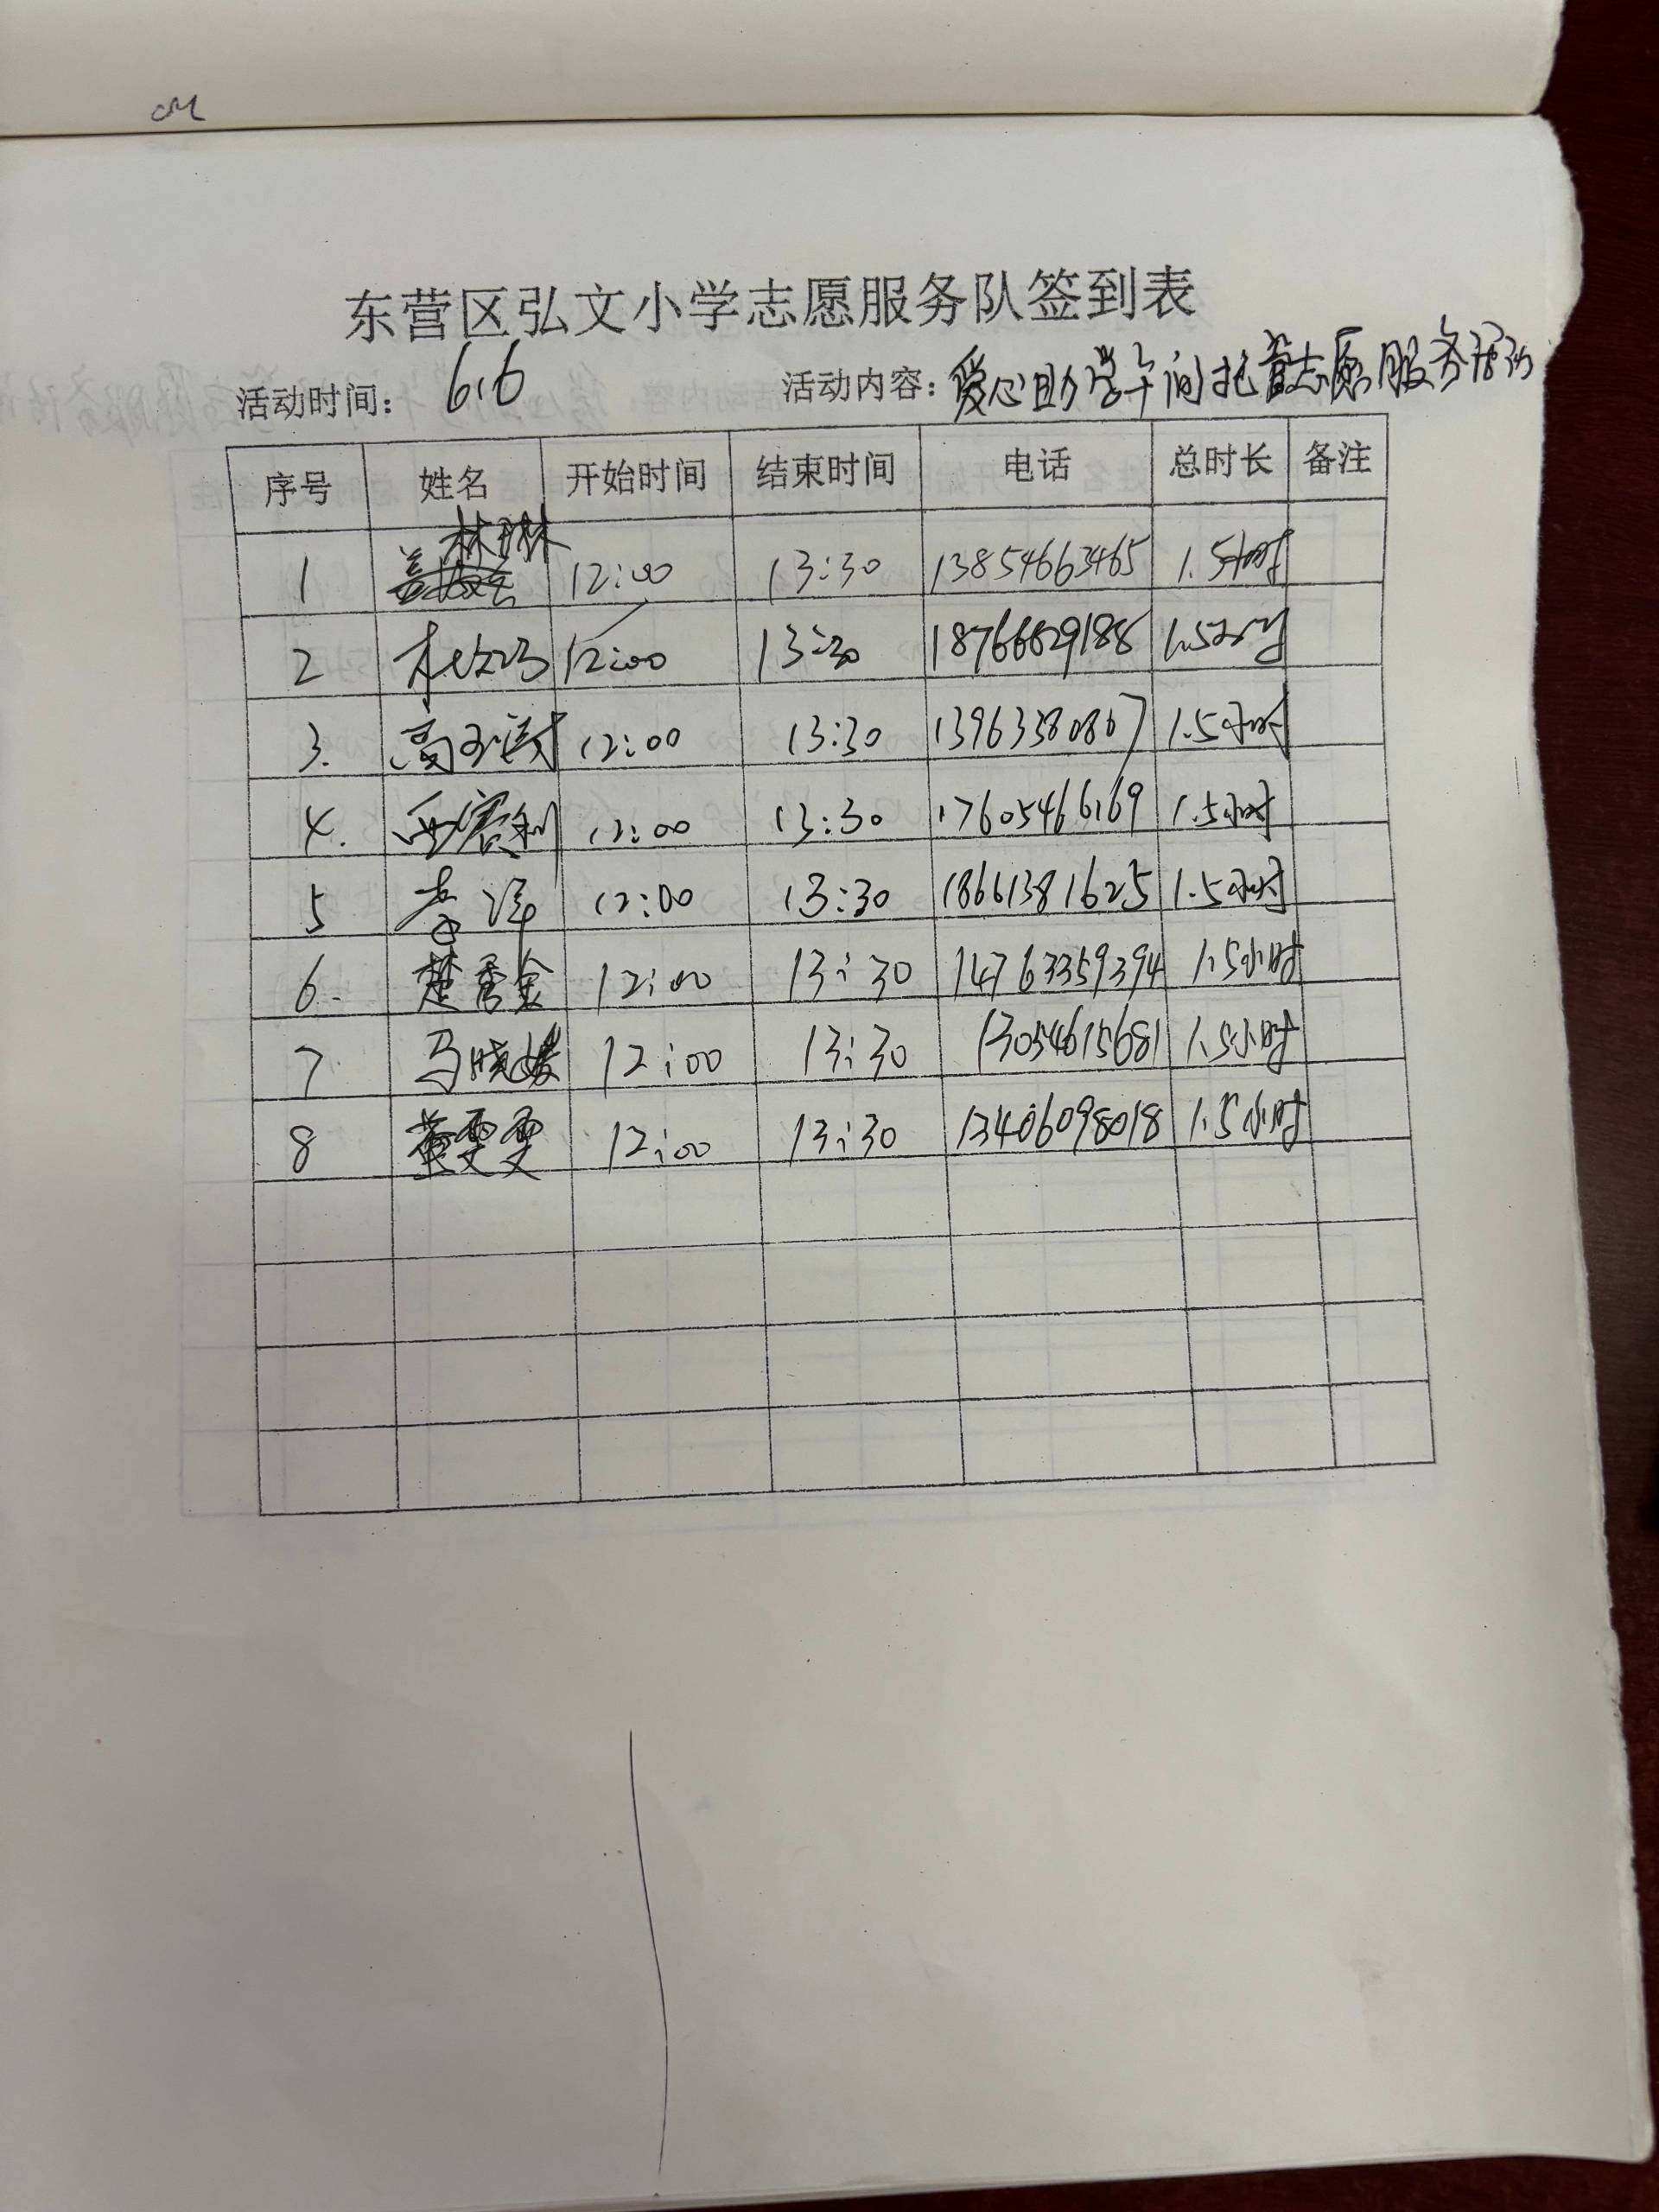 东营区弘文小学志愿服务队签到表
活动时间: 6.6 活动内容: 爱心助学午间托管志愿服务活动
序号 姓名 开始时间 结束时间 电话 总时长 备注
1 林琳 12:00 13:30 13854663465 1.5小时
2 12:00 13:30 18766629188 1.5小时
3. 高玉涛 12:00 13:30 13963380867 1.5小时
4. 12:00 13:30 17605466169 1.5小时
5 李洋 12:00 13:30 18661381625 1.5小时
6. 楚香金 12:00 13:30 14763359394 1.5小时
7 马晓媛 12:00 13:30 13054615681 1.5小时
8 董雯雯 12:00 13:30 13406098018 1.5小时